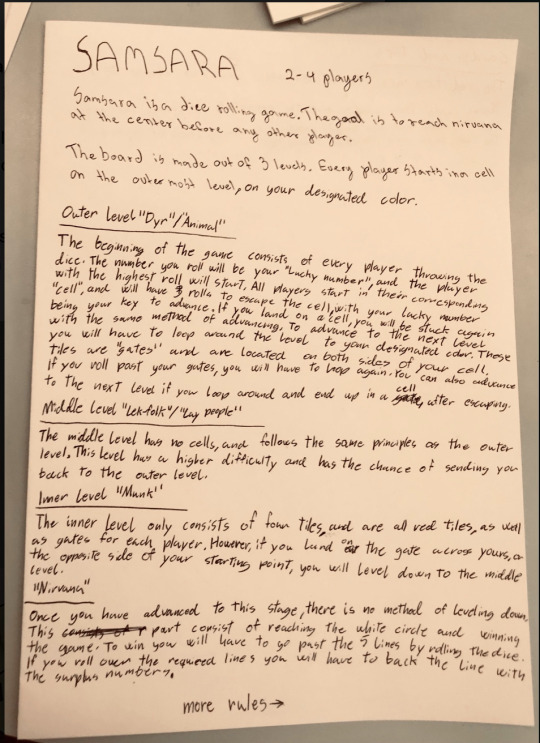 SAMSARA 2-4 players
Samsara is a dice rolling game. The goal is to reach nirvana
at the center before any other player.
The board is made out of 3 levels. Every player starts in a cell
on the outermost level, on your designated color.
Outer Level "Dyr"/"Animal"
The beginning of the game consists of every player throwing the
dice. The number you roll will be your "Lucky number", and the player
with the highest roll will start. All players start in their corresponding
"cell", and will have 3 rolls to escape the cell, with your lucky number
being your key to advance. If you land on a cell, you will be stuck again
with the same method of advancing. To advance to the next level
you will have to loop around the level to your designated color. These
tiles are "gates" and are located on both sides of your cell.
If you roll past your gates, you will have to loop again. You can also advance
to the next level if you loop around and end up in a cell, after escaping.
Middle Level "Lekfolk"/"Lay people"
The middle level has no cells, and follows the same principles as the outer
level. This level has a higher difficulty and has the chance of sending you
back to the outer level.
Inner Level "Munk"
The inner level only consists of four tiles, and are all red tiles, as well
as gates for each player. However, if you land on the gate across yours, or
the opposite side of your starting point, you will level down to the middle
level.
"Nirvana"
Once you have advanced to this stage, there is no method of leveling down.
This part consist of reaching the white circle and winning
the game. To win you will have to go past the 5 lines by rolling the dice.
If you roll over the required lines you will have to back the line with
the surplus numbers.
more rules→